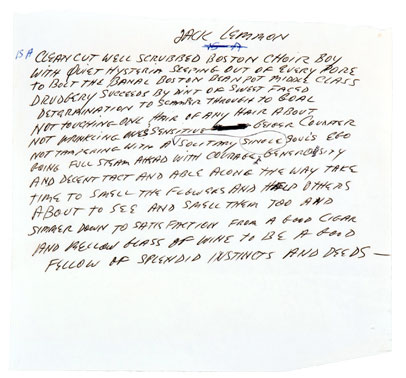 JACK LEMMON
IS A
IS A CLEAN CUT WELL SCRUBBED BOSTON CHOIR BOY
WITH QUIET HYSTERIA SEEPING OUT OF EVERY PORE
TO BOLT THE BANAL BOSTON BEAN POT MIDDLE CLASS
DRUDGERY SUCCEEDS BY DINT OF SWEET FACED
DETERMINATION TO SCAMPER THROUGH TO GOAL
NOT TOUCHING ONE HAIR OF ANY HARE ABOUT
NOT WRINKLING SENSITIVE UNDER COUNTER
NOT TAMPERING WITH A SOLITARY SINGLE SOUL'S EGO
GOING FULL STEAM AHEAD WITH COURAGE, GENEROSITY
AND DECENT TACT AND ABLE ALONG THE WAY TAKE
TIME TO SMELL THE FLOWERS AND HELP OTHERS
ABOUT TO SEE AND SMELL THEM TOO AND
SIMMER DOWN TO SATISFACTION FROM A GOOD CIGAR
AND MELLOW GLASS OF WINE TO BE A GOOD
FELLOW OF SPLENDID INSTINCTS AND DEEDS —